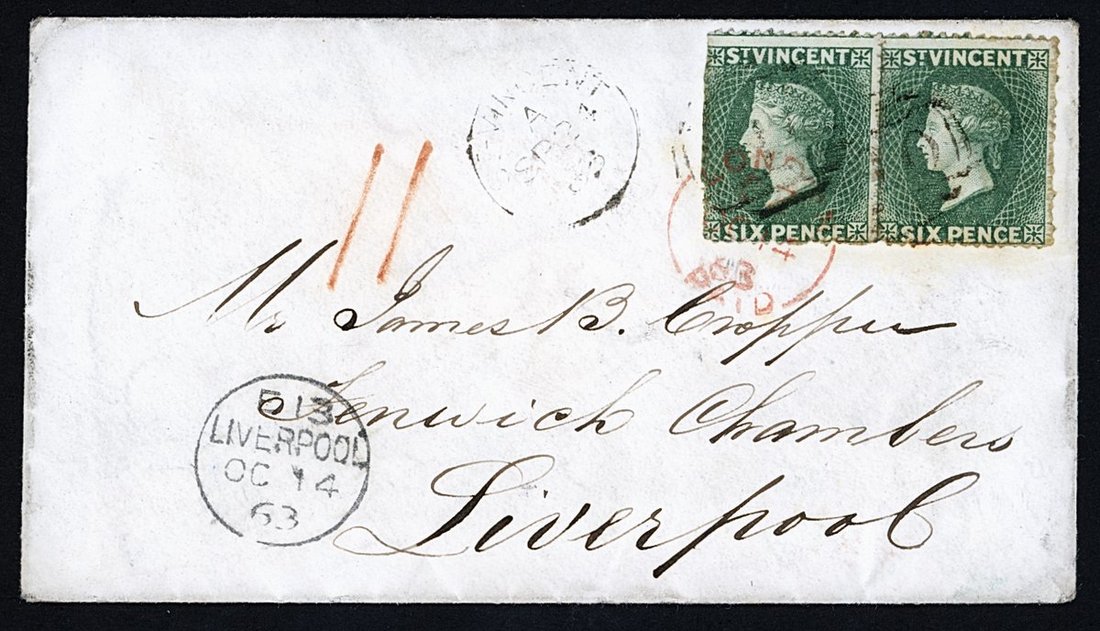 ST VINCENT ST VINCENT
SIX PENCE SIX PENCE
ST-VINCENT
A
LONDON
PAID
11
Mr James B. Cropper
Fenwick Chambers
Liverpool
E 13
LIVERPOOL
OC 14
63